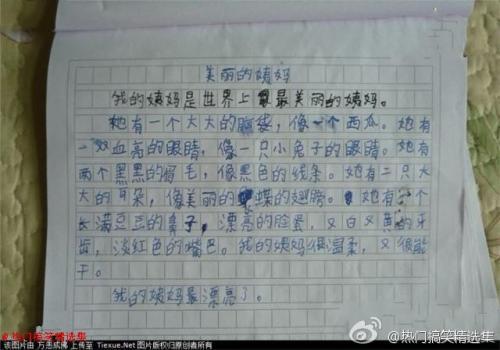 美丽的姨妈
我的姨妈是世界上最最美丽的姨妈。
她有一个大大的脑袋，像一个西瓜。她有
一双血亮的眼睛，像一只小兔子的眼睛。她有
两个黑黑的眉毛，像黑色的线条。她有二只大
大的耳朵，像美丽的蝴蝶的翅膀。她有一个
长满豆豆的鼻子，漂亮的脸蛋，又白又黄的牙
齿，淡红色的嘴巴。我的姨妈很温柔，又很能
干。
我的姨妈最漂亮了。
@热门搞笑精选集
@热门搞笑精选集
该图片由 万恶成佛 上传至 Tiexue.Net 图片版权归原创者所有